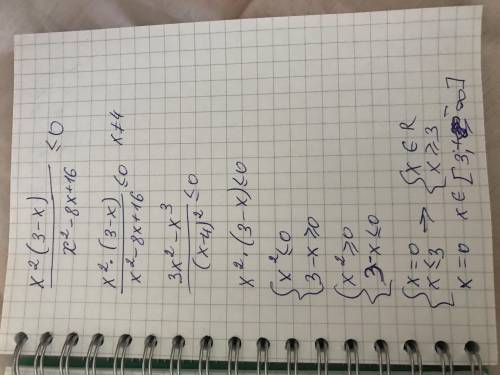 x²(3-x) / x²-8x+16 ≤0
x²·(3-x) / x²-8x+16 ≤0 x≠4
3x²-x³ / (x-4)² ≤0
x²·(3-x)≤0
{x²≤0
3-x≥0
{x²≥0
3-x≤0
{x=0 x≤3 → {x∈R x≥3
x=0 x∈[3;∞]